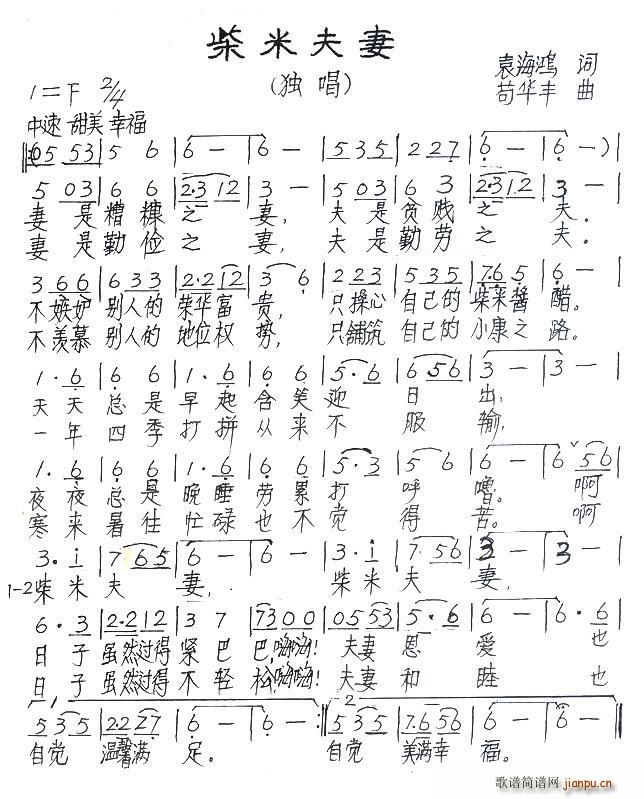 柴米夫妻
(独唱)
袁海鸿 词
苟华丰 曲
1=F 2/4
中速 甜美 幸福
05 53 | 5 6 | 6 - | 6 - | 535 | 227 | 6 - | 6 - )
5 03 | 6 6 | 2·3 12 | 3 - | 5 03 | 6 3 | 2·3 12 | 3 - |
妻是糟糠之妻，夫是贫贱之夫。
妻是勤俭之妻，夫是勤劳之夫。
3 66 | 6 33 | 2·2 12 | 3 6 | 2 23 | 5 35 | 7·6 5 | 6 - |
不嫉妒别人的荣华富贵，只操心自己的柴米酱醋。
不羡慕别人的地位权势，只铺筑自己的小康之路。
1· 6 | 6 6 | 1· 6 | 6 6 | 5· 6 | 6 56 | 3 - | 3 - |
天天总是早起含笑迎日出，
一年四季打拼从来不服输，
1· 6 | 6 6 | 1· 6 | 6 6 | 5· 3 | 5 6 | 6 - | 6 56 |
夜夜总是晚睡劳累打呼噜。啊
寒来暑往忙碌也不觉得苦。啊
3· i | 7 65 | 6 - | 6 - | 3· i | 7 56 | 3 - | 3 - |
1-2 柴米夫妻，柴米夫妻，
6· 3 | 2·2 12 | 3 7 | 73 00 | 05 53 | 5· 6 | 6 - | 6· 6 |
日子虽然过得紧巴巴，嗨嗨！夫妻恩爱也
日子虽然过得不轻松，嗨嗨！夫妻和睦也
1
2
5 35 | 22 27 | 6 - | 6 - :| 5 35 | 7·6 56 | 6 - | 6 - |
自觉温馨满足。自觉美满幸福。
歌谱简谱网
jianpu.cn